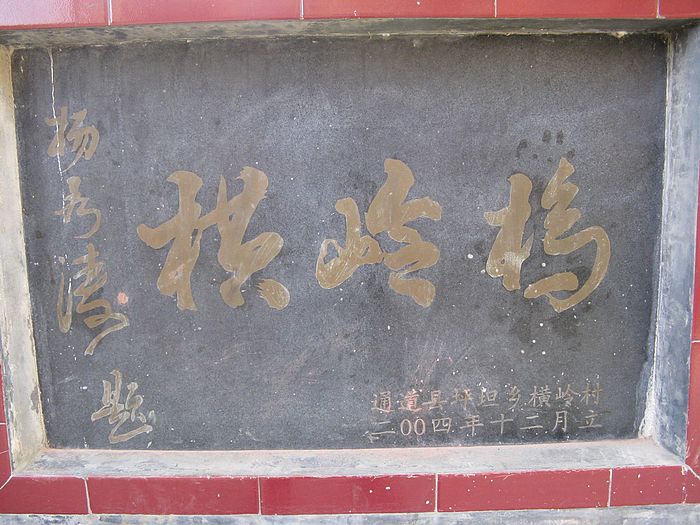 横岭桥
杨秀涛 题
通道县坪坦乡横岭村
二00四年十二月立